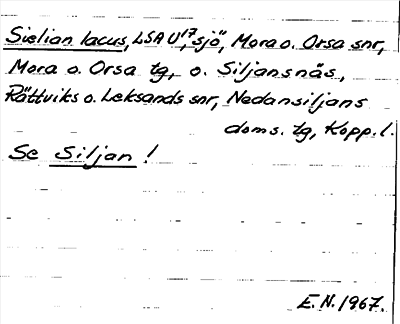 Sielian lacus, LSA U¹⁷, "sjö", Mora o. Orsa snr,
Mora o. Orsa tg, o. Siljansnäs,
Rättviks o. Leksands snr, Nedansiljans
doms. tg, Kopp. l.
Se Siljan !
E.N. 1967.